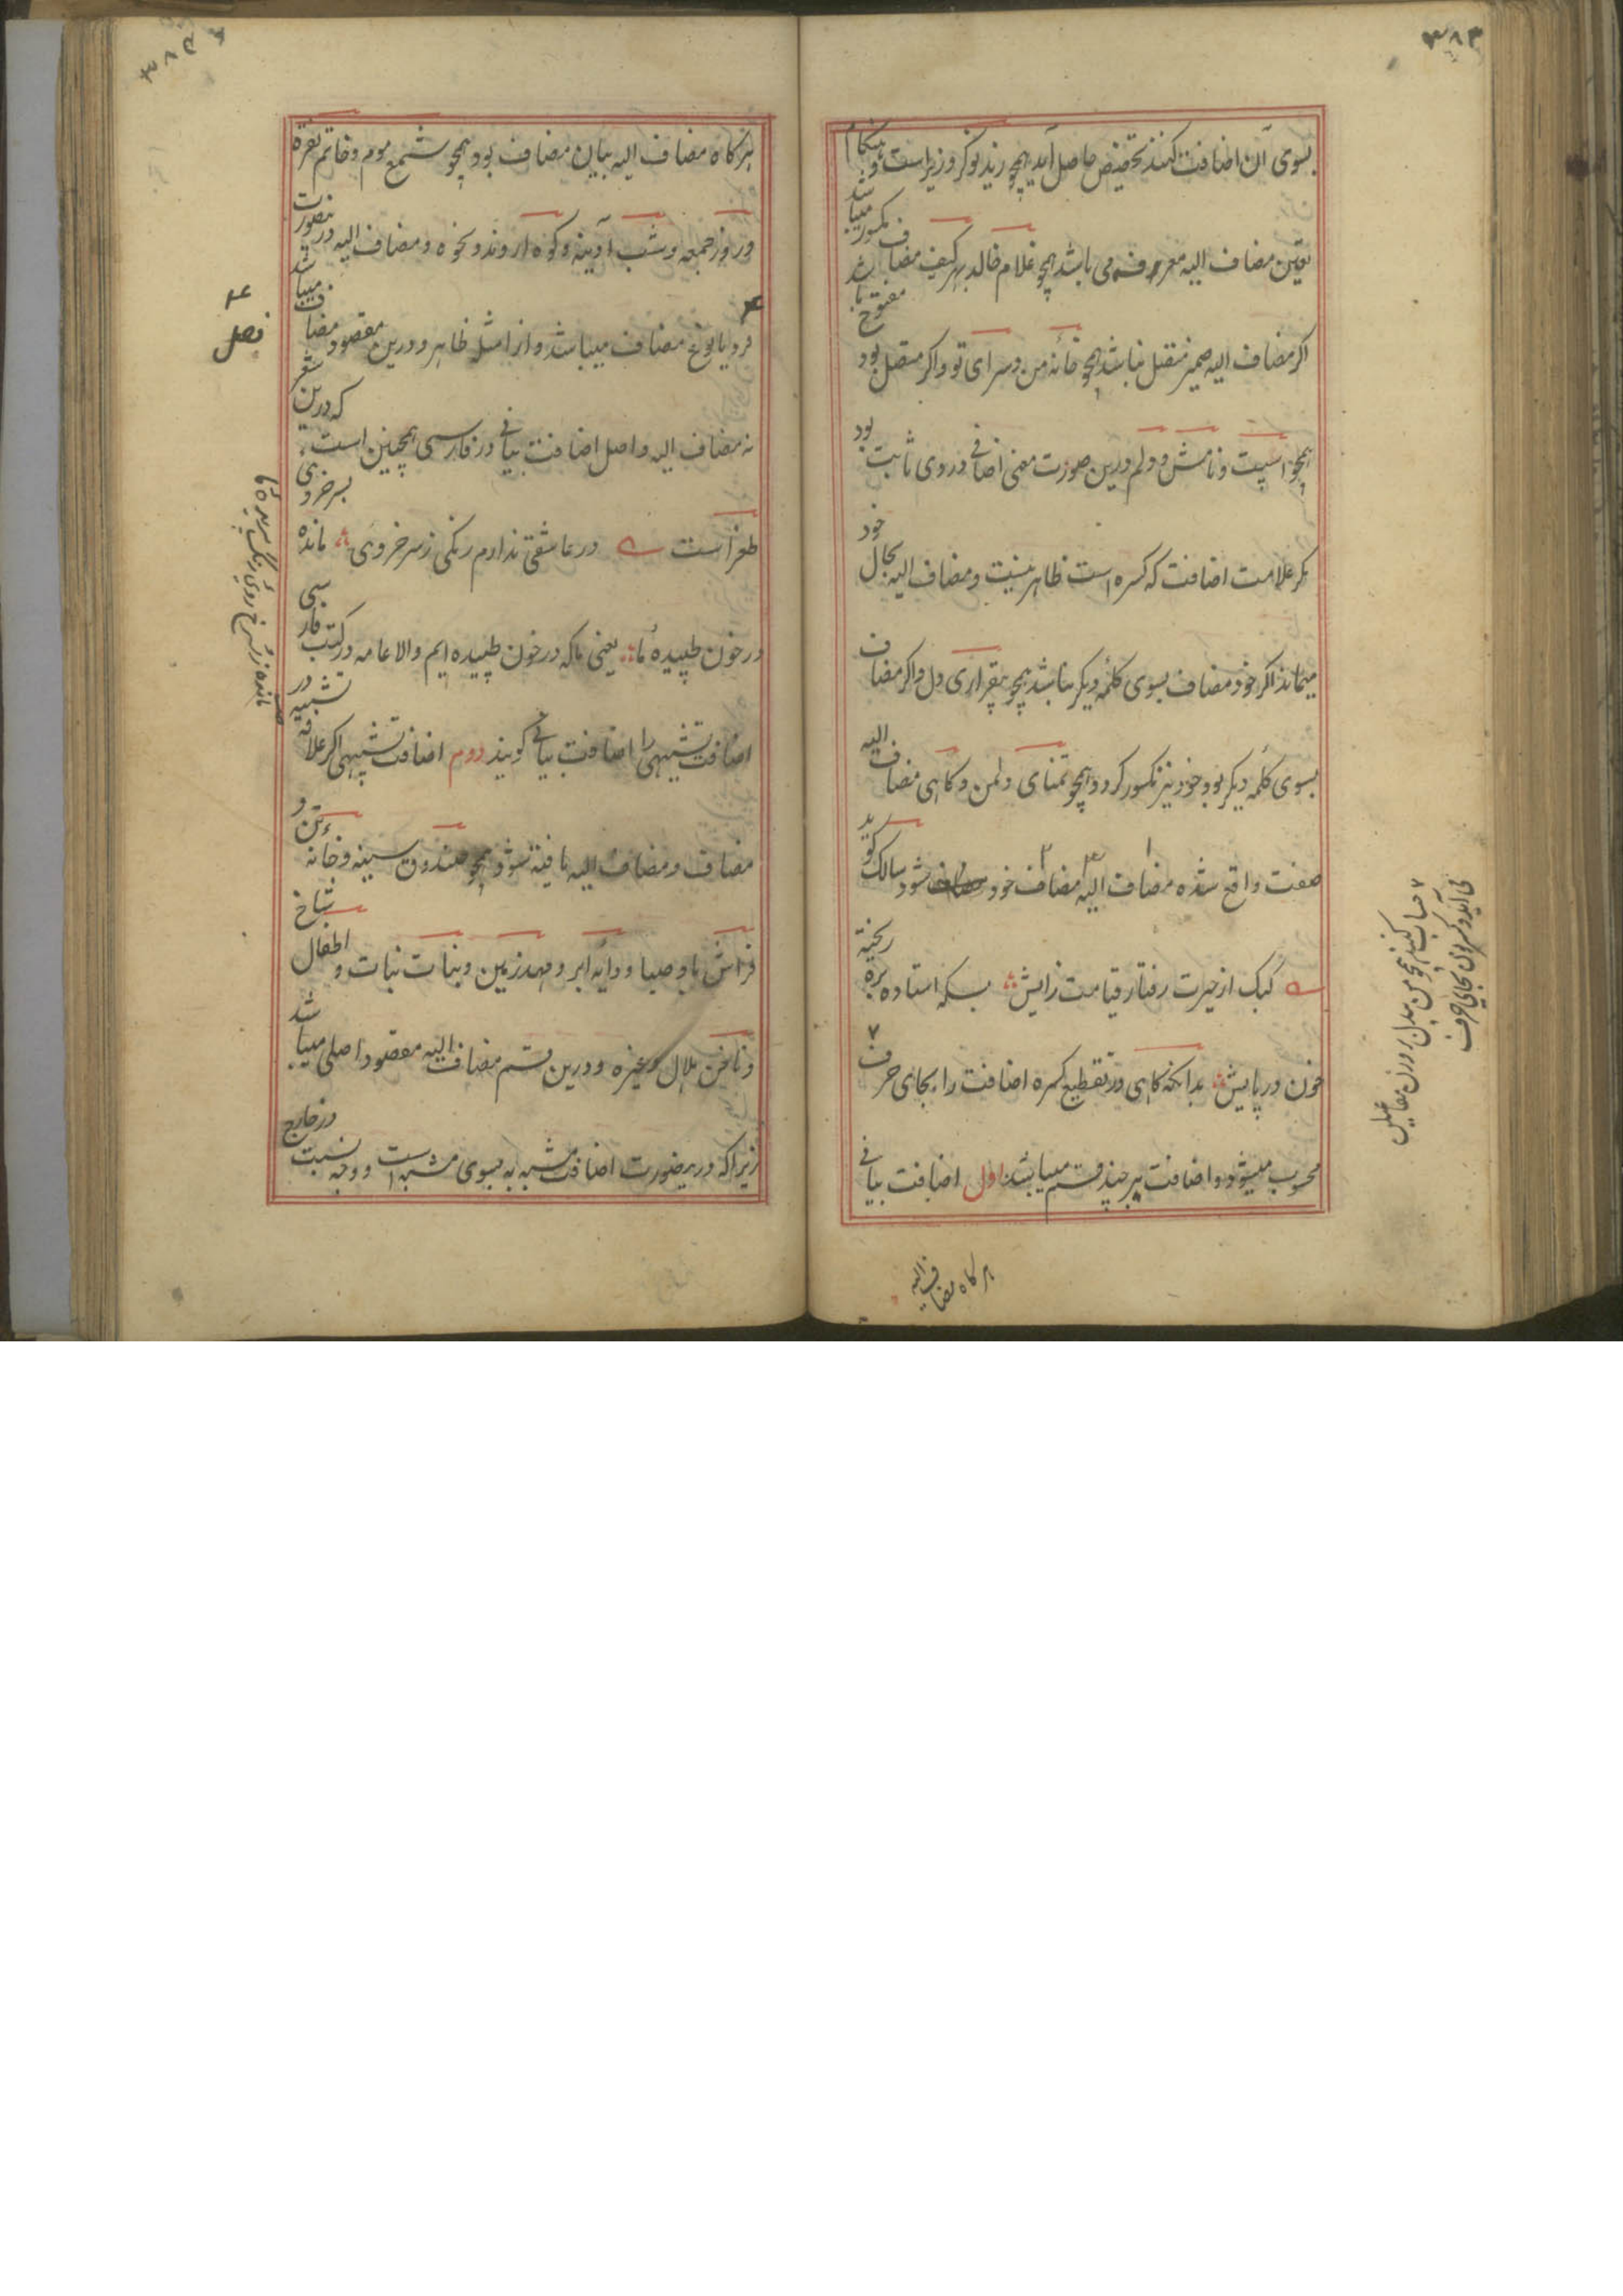 ۳۸۳
بسوی آن اضافت کنند تخصیص حاصل آید همچو زید نوکر وزیر است و هنگام
تعین مضاف الیه معرفه می باشد همچو غلام خالد بهر کیف مضاف مکسور میباشد
اگر مضاف الیه ضمیر متصل نباشد همچو خانه من و سرای تو و اگر متصل بود مفتوح باشد
همچو اسپت و نامش و دلم درین صورت معنی اضافی در وی ثابت بود
مگر علامت اضافت که کسره است ظاهر نیست و مضاف الیه بحال خود
میماند اگر خود مضاف بسوی کلمه دیگر نباشد همچو بیقراری دل و اگر مضاف
بسوی کلمه دیگر بود خود نیز مکسور گردد همچو تمنای دل من و گاهی مضاف الیه
صفت واقع شده مضاف الیه مضاف خود شود سالک گوید
کبک از حیرت رفتار قیامت زایش بسکه استاده بره ریخته
خون در پایش بدانکه گاهی در تقطیع کسره اضافت را بجای حرف ۷
محسوب میشود و اضافت بر چند قسم میباشد اول اضافت بیانی
هرگاه مضاف الیه
هرگاه مضاف الیه بیان مضاف بود همچو شمع موم و خاتم نقره
و روز جمعه و شب آدینه و کوه اروند و نحوه و مضاف الیه درینصورت
فرد یا نوع مضاف میباشد و از امثله ظاهر و درین مقصود مضاف میباشد
نه مضاف الیه و اصل اضافت بیانی در فارسی همچنین است که درین شعر
طغراست در عاشقی ندارم رنگی ز سرخروی مانده بسرخروی
در خون طپیده ما یعنی ما که در خون طپیده ایم والا عامه در کتب فارسی
اضافت تشبیهی را اضافت بیانی گویند دوم اضافت تشبیهی اگر علاقه تشبیه در
مضاف و مضاف الیه یافته شود همچو صندوق سینه و خانه تن و
فراش باد صبا و دایه ابر و مهد زمین و بنات نبات و اطفال شاخ
و ناخن هلال و غیره و درین قسم مضاف الیه مقصود اصلی میباشد
زیراکه درینصورت اضافت مشبه به بسوی مشبه است و وجه نسبت در خارج
فصل